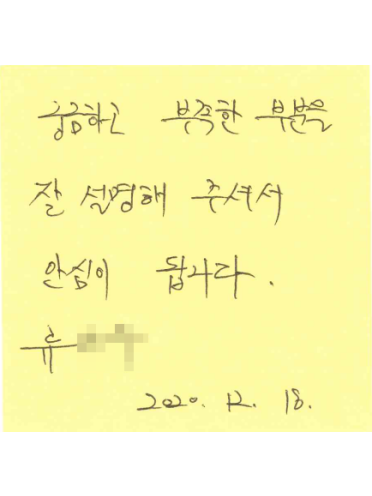 궁금하고 부족한 부분을
잘 설명해 주셔서
안심이 됩니다.
류
2020. 12. 18.